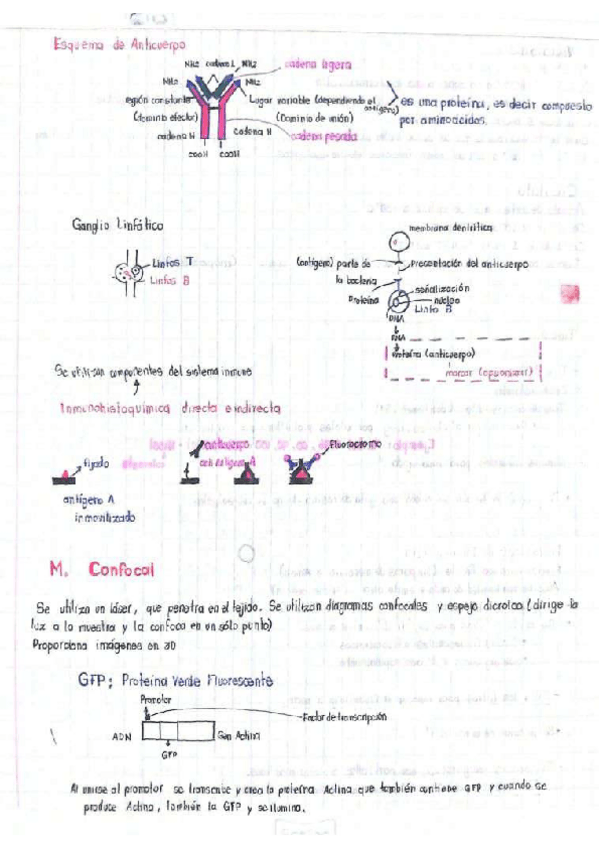 Esquema de Anticuerpo
NH2 cadena L NH2 cadena ligera
NH2 NH2
región constante Lugar variable (dependiendo el antígeno) es una proteína, es decir compuesto
(dominio efector) (Dominio de unión) por aminoácidos.
cadena H cadena H cadena pesada
cooH cooH
Ganglio Linfático
Linfos T
Linfos B
membrana denlrítica
(antígeno) parte de Presentación del anticuerpo
la bacteria
señalización
Proteína núcleo
Linfo B
DNA
RNA
Proteína (anticuerpo)
marcar (opsonizar)
Se utilizan componentes del sistema inmune
Inmunohistoquímica directa e indirecta
fijado anticuerpo Fluorocromo
anti antígeno A
antígeno A
inmovilizado
M. Confocal
Se utiliza un láser, que penetra en el tejido. Se utilizan diagramas confocales y espejo dicroico (dirige la
luz a la muestra y la confoca en un sólo punto)
Proporciona imágenes en 3D
GFP: Proteína Verde Fluorescente
Promotor
Factor de transcripción
ADN Gen Actina
GFP
Al unirse al promotor se transcribe y crea la proteína Actina que también contiene GFP y cuando se
produce Actina, también la GFP y se ilumina.